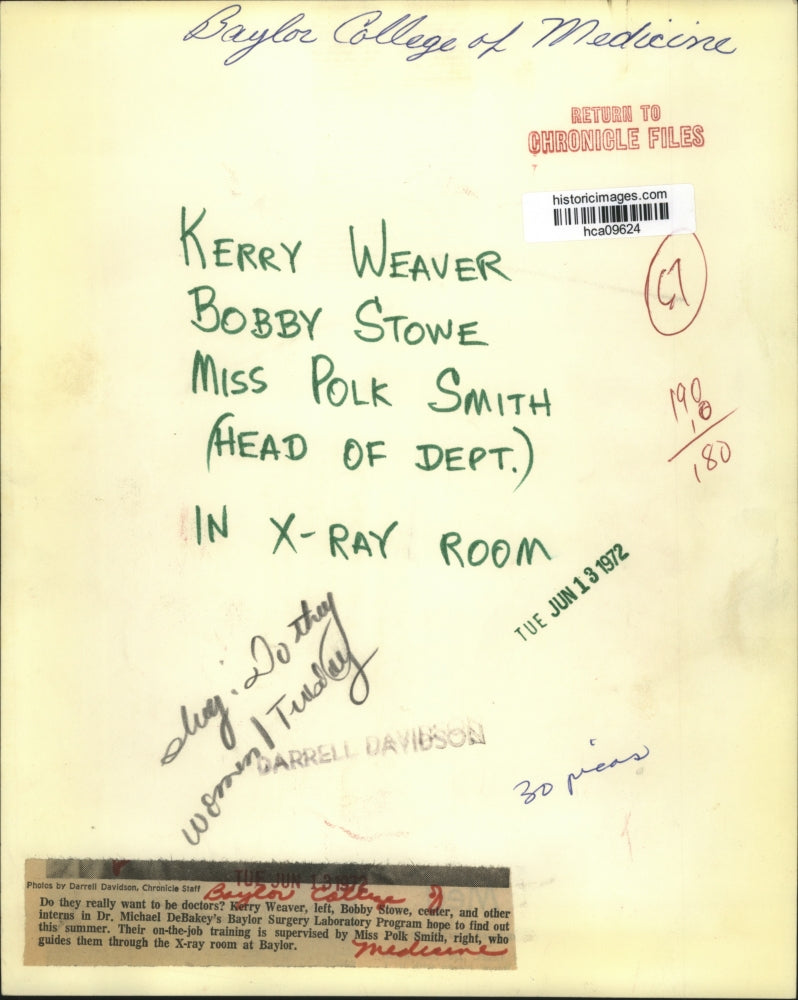 Baylor College of Medicine
RETURN TO
CHRONICLE FILES
historicimages.com
hca09624
KERRY WEAVER
BOBBY STOWE
MISS POLK SMITH
(HEAD OF DEPT.)
IN X-RAY ROOM
190
10
180
TUE JUN 13 1972
slug: Do they
women / Tuesday
DARRELL DAVIDSON
30 picas
TUE JUN 13 1972
Photos by Darrell Davidson, Chronicle Staff
Baylor College of
Do they really want to be doctors? Kerry Weaver, left, Bobby Stowe, center, and other
interns in Dr. Michael DeBakey's Baylor Surgery Laboratory Program hope to find out
this summer. Their on-the-job training is supervised by Miss Polk Smith, right, who
guides them through the X-ray room at Baylor.
Medicine